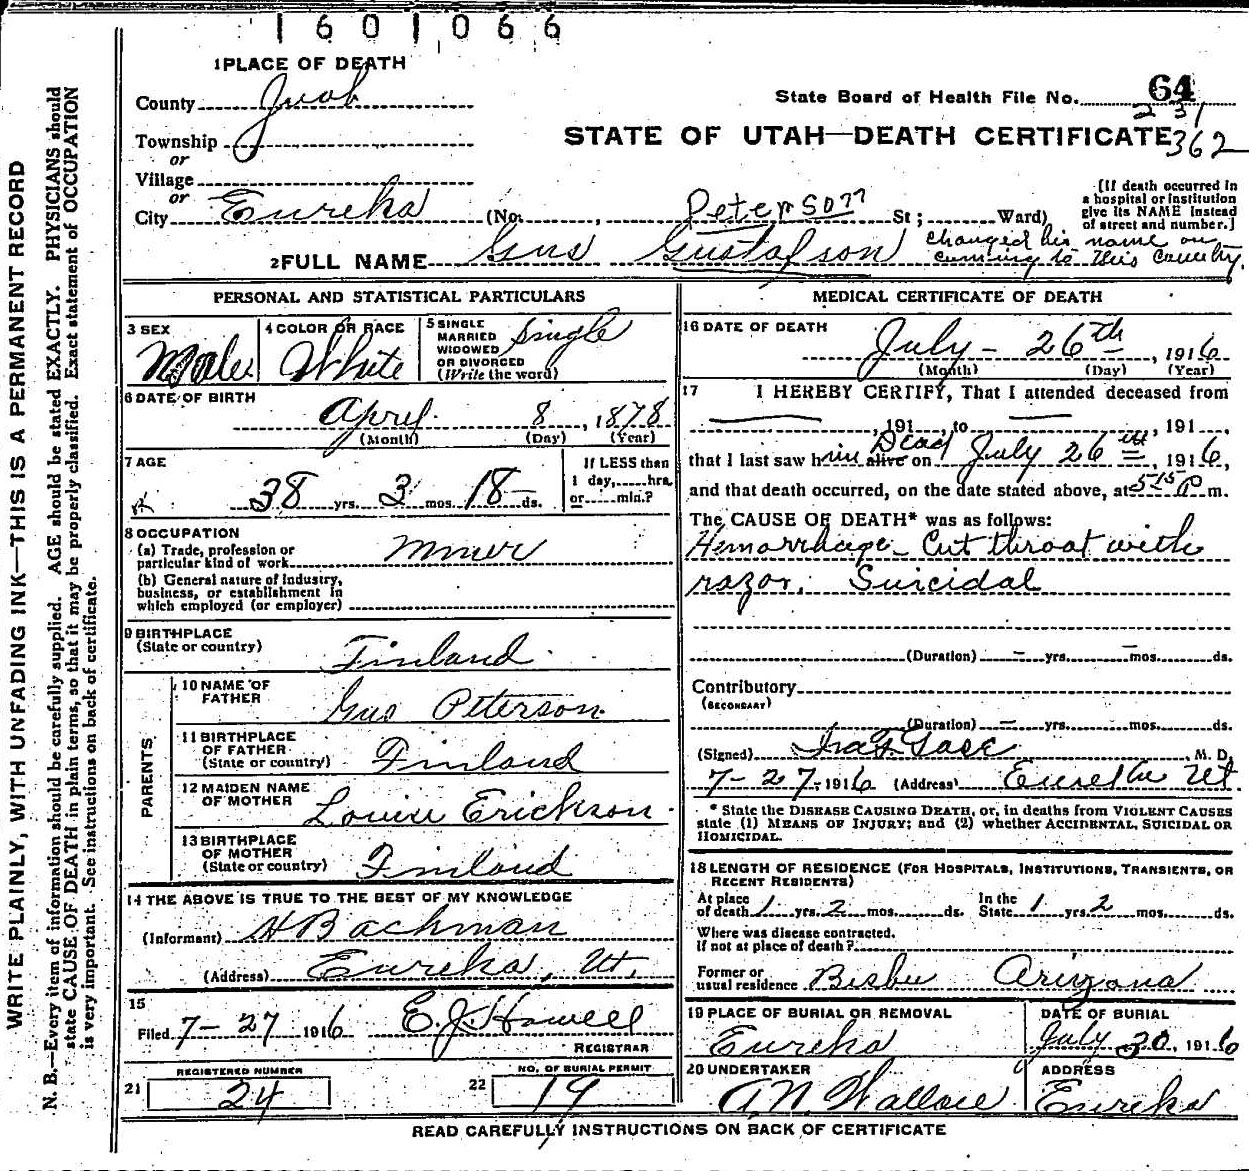 1601066
1 PLACE OF DEATH
County Juab
State Board of Health File No. 64
231
Township
STATE OF UTAH—DEATH CERTIFICATE 362
or
Village
or
City Eureka (No. , Peterson St; Ward)
[If death occurred in
a hospital or institution
give its NAME instead
of street and number.]
2 FULL NAME Gus Gustafson changed his name on
cuming to this country.
PERSONAL AND STATISTICAL PARTICULARS
3 SEX
Male
4 COLOR OR RACE
White
5 SINGLE
MARRIED
WIDOWED
OR DIVORCED
(Write the word)
Single
6 DATE OF BIRTH
April 8, 1878
(Month) (Day) (Year)
7 AGE
38 yrs. 3 mos. 18 ds.
If LESS than
1 day, hrs.
or min.?
8 OCCUPATION
(a) Trade, profession or
particular kind of work Miner
(b) General nature of Industry,
business, or establishment in
which employed (or employer)
9 BIRTHPLACE
(State or country) Finland
PARENTS
10 NAME OF
FATHER Gus Peterson
11 BIRTHPLACE
OF FATHER
(State or country) Finland
12 MAIDEN NAME
OF MOTHER Louise Erickson
13 BIRTHPLACE
OF MOTHER
(State or country) Finland
14 THE ABOVE IS TRUE TO THE BEST OF MY KNOWLEDGE
(Informant) H Bachman
(Address) Eureka, Ut.
15
Filed 7-27 1916 E.J. Howell
REGISTRAR
21 REGISTERED NUMBER
24
22 NO. OF BURIAL PERMIT
19
MEDICAL CERTIFICATE OF DEATH
16 DATE OF DEATH
July - 26th, 1916
(Month) (Day) (Year)
17 I HEREBY CERTIFY, That I attended deceased from
, 191 , to , 191 ,
Dead
that I last saw him alive on July 26th, 1916,
and that death occurred, on the date stated above, at 5 15 P m.
The CAUSE OF DEATH* was as follows:
Hemorrhage - Cut throat with
razor. Suicidal
(Duration) – yrs. – mos. ds.
Contributory
(SECONDARY)
(Duration) – yrs. mos. ds.
(Signed) Ira F. , M. D.
7-27, 1916 (Address) Eureka Ut
* State the DISEASE CAUSING DEATH, or, in deaths from VIOLENT CAUSES
state (1) MEANS OF INJURY; and (2) whether ACCIDENTAL, SUICIDAL OR
HOMICIDAL.
18 LENGTH OF RESIDENCE (FOR HOSPITALS, INSTITUTIONS, TRANSIENTS, OR
RECENT RESIDENTS)
At place
of death 1 yrs. 2 mos. ds.
In the
State 1 yrs. 2 mos. ds.
Where was disease contracted.
If not at place of death?
Former or
usual residence Bisbee Arizona
19 PLACE OF BURIAL OR REMOVAL
Eureka
DATE OF BURIAL
July 30, 1916
20 UNDERTAKER
A.N. Wallace
ADDRESS
Eureka
READ CAREFULLY INSTRUCTIONS ON BACK OF CERTIFICATE
WRITE PLAINLY, WITH UNFADING INK—THIS IS A PERMANENT RECORD
N. B.—Every item of information should be carefully supplied. AGE should be stated EXACTLY. PHYSICIANS should
state CAUSE OF DEATH in plain terms, so that it may be properly classified. Exact statement of OCCUPATION
is very important. See instructions on back of certificate.